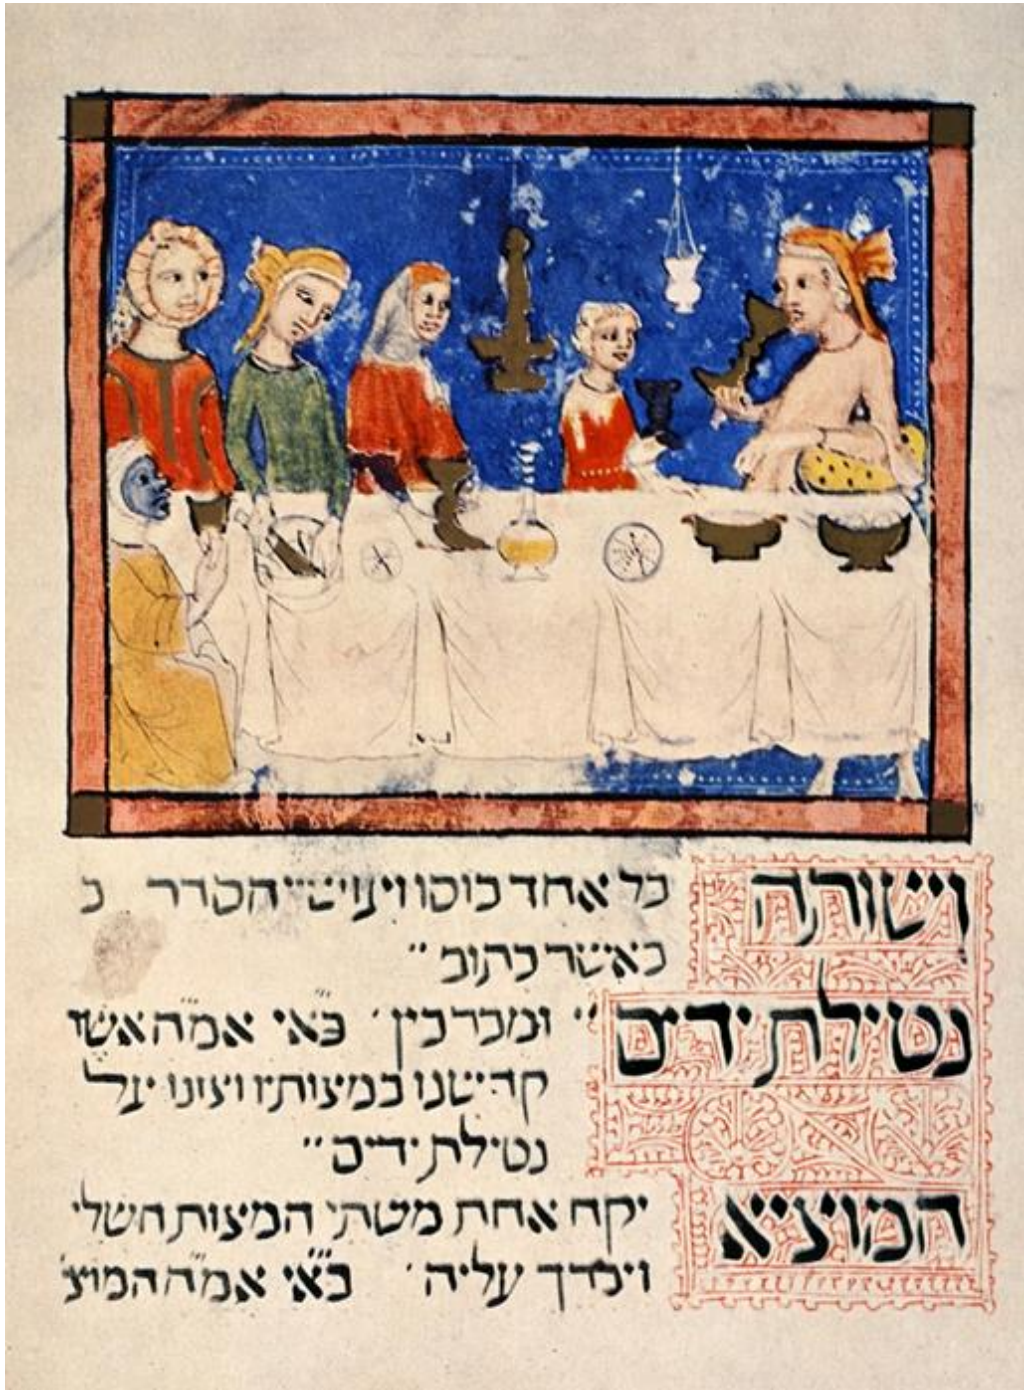 וישותה כל אחד כוסו הסדר כ
כאשר כתוב ״
נטילת ידים ״ ומברכין ׳ בא״י אמ״ה אשר
קדישנו במצותיו וצונו על
נטילת ידים ״
המוציא יקח אחת משתי המצות השלי
ויברך עליה ׳ בא״י אמ״ה המוצ׳